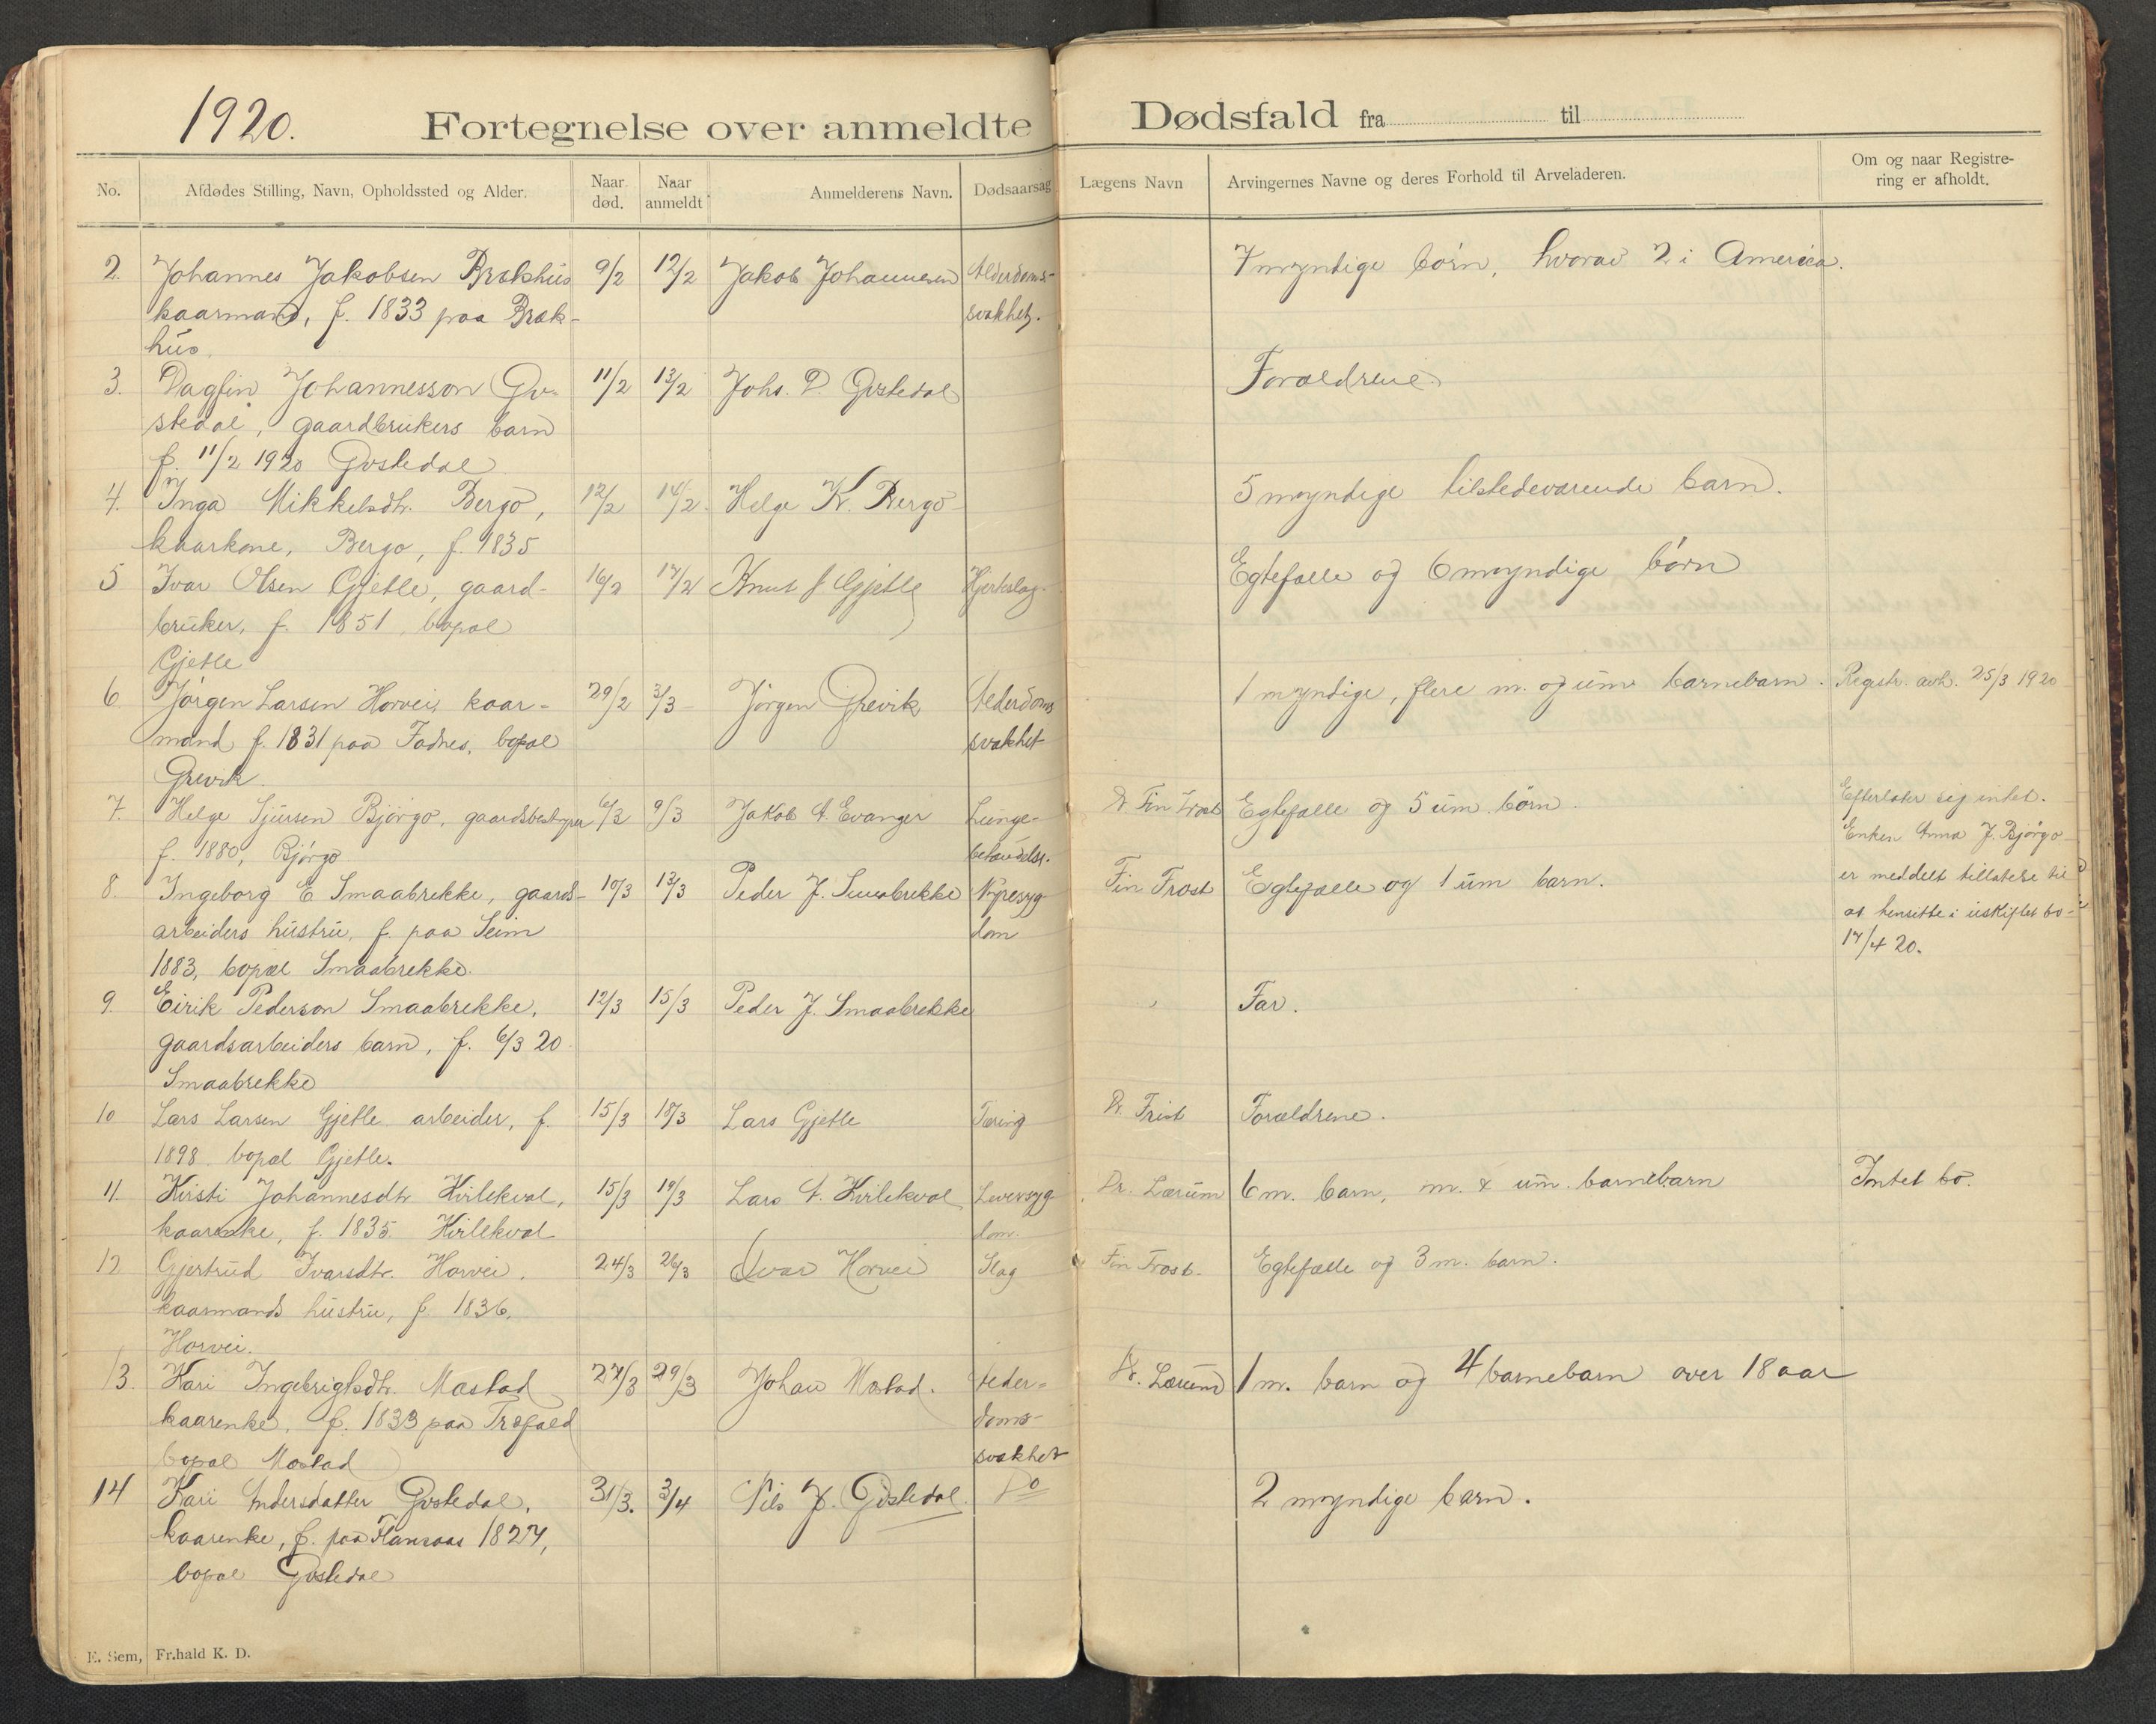 1920.
Fortegnelse over anmeldte Dødsfald fra til
No. Afdødes Stilling, Navn, Opholdssted og Alder. Naar død. Naar anmeldt Anmelderens Navn. Dødsaarsag Lægens Navn Arvingernes Navne og deres Forhold til Arveladeren. Om og naar Registrering er afholdt.
2. Johannes Jakobsen Brækhus 9/2 12/2 Jakob Johannesen Alderdoms- 7 myndige børn, hvorav 2 i America.
kaarmand, f. 1833 paa Bræk- svakhet.
hus.
3. Dagfin Johannesson Gjø- 11/2 13/2 Johs. D. Gjøstedal Forældrene.
stedal, gaardbrukers barn
f. 11/2 1920 Gjøstedal
4. Inga Mikkelsdtr. Bergo, 12/2 14/2 Helge K. Bergo 5 myndige tilstedeværende barn.
kaarkone, Bergo, f. 1835
5 Ivar Olsen Gjetle, gaard- 16/2 17/2 Knut J Gjetle Hjerteslag. Egtefælle og 6 myndige børn
bruker, f. 1851, bopæl
Gjetle
6 Jørgen Larsen Horvei, kaar- 29/2 3/3 Jørgen Grevik Alderdoms 1 myndige, flere m. og um. barnebarn. Registr. avh. 25/3 1920
mand f. 1831 paa Fadnes, bopæl svakhet
Grevik.
7. Helge Sjursen Bjørgo, gaardsbestyrer 6/3 9/3 Jakob A. Evanger Lunge- Dr Fin Frost Egtefælle og 5 um. børn. Efterlater sig intet.
f. 1880, Bjørgo Enken Anna J. Bjørgo
8. Ingeborg E Smaabrekke, gaards- 10/3 13/3 Peder J. Smaabrekke Nyresyg- Fin Frost Egtefælle og 1 um barn. er meddelt tillatelse til
arbeiders hustru, f. paa Seim dom at hensitte i uskiftet bo
1883, bopæl Smaabrekke. 17/4 20.
9. Eirik Pederson Smaabrekke, 12/3 15/3 Peder J. Smaabrekke Far.
gaardsarbeiders barn, f. 6/3 20
Smaabrekke
10 Lars Larsen Gjetle arbeider, f. 15/3 18/3 Lars Gjetle Tæring Dr. Frost Forældrene.
1898. bopæl Gjetle.
11. Kirsti Johannesdtr Kvilekval, 15/3 19/3 Lars A. Kvilekval Leversyg- Dr. Lærum 6 m. barn, m. & um. barnebarn Intet bo.
kaarenke, f. 1835. Kvilekval dom.
12 Gjertrud Ivarsdtr. Horvei, 24/3 26/3 Ivar Horvei Slag Fin Frost. Egtefælle og 3 m. barn.
kaarmands hustru, f. 1836,
Horvei.
13. Kari Ingebrigtsdtr. Mastad 27/3 29/3 Johan Mastad. Alder- Dr. Lærum 1 m. barn og 4 barnebarn over 18 aar
kaarenke, f. 1833 paa Træfald doms-
bopæl Mastad svakhet
14 Kari Andersdatter Gjøstedal, 31/3. 3/4 Nils J. Gjøstedal. Do 2 myndige barn.
kaarenke, f. paa 1827,
bopæl Gjøstedal
E. Sem, Fr.hald K. D.